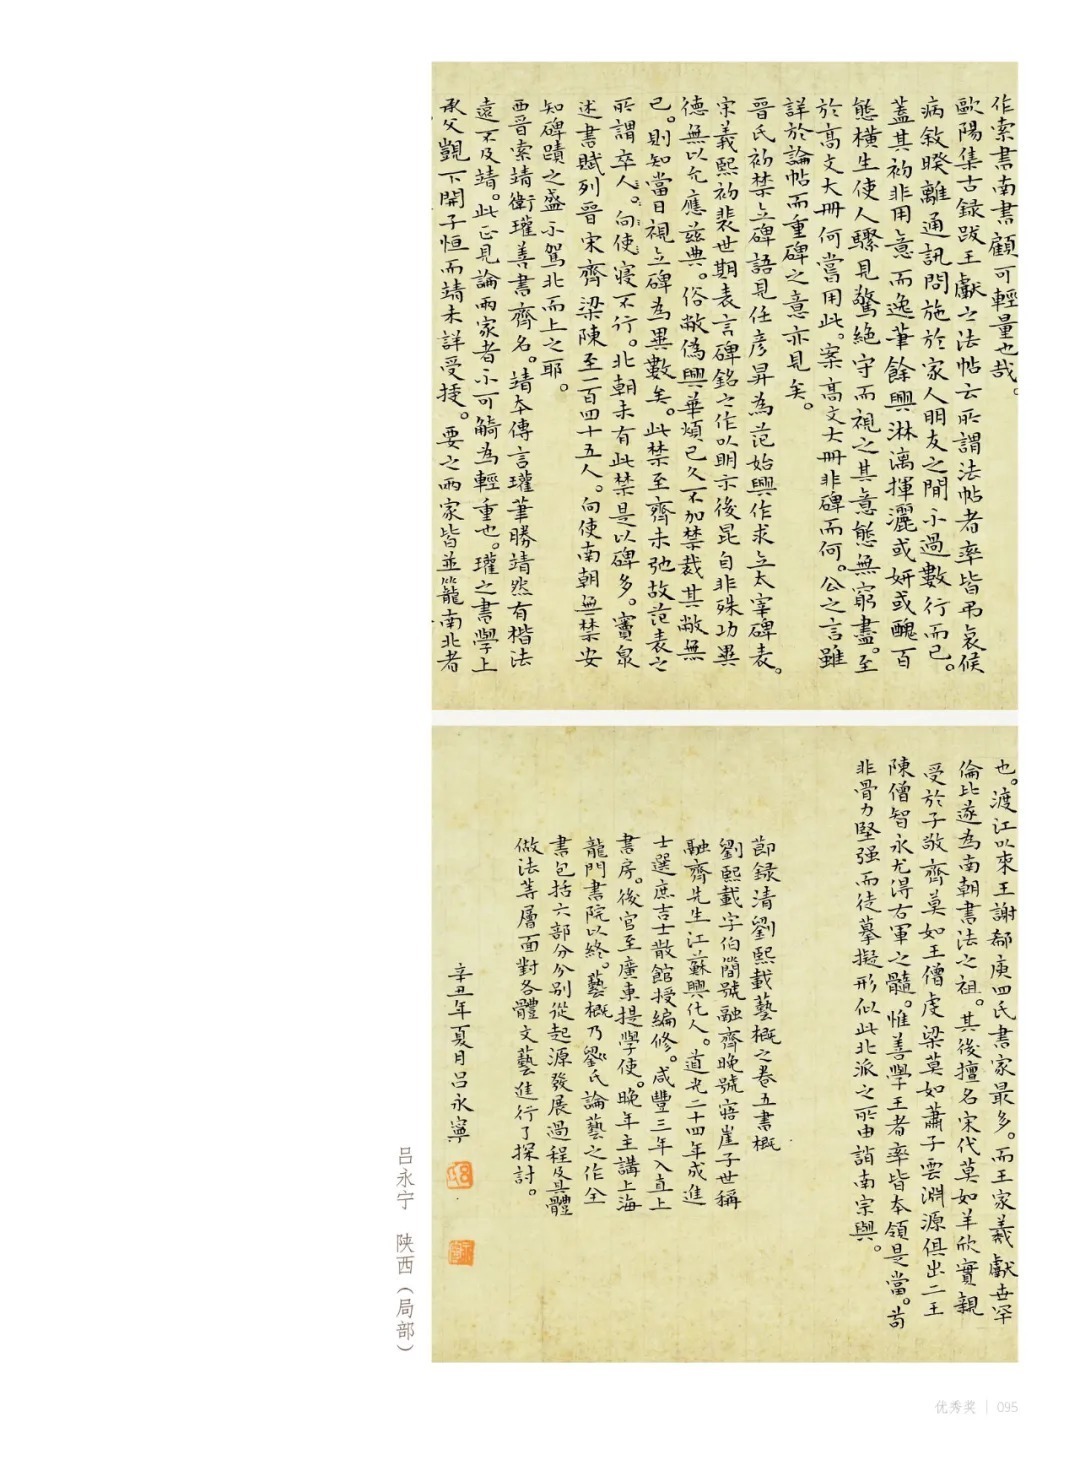 作索書南書顧可輕量也哉。
歐陽集古録跋王獻之法帖云所謂法帖者率皆弔哀候
病敘睽離通訊問施於家人朋友之間不過數行而已。
蓋其初非用意而逸筆餘興淋漓揮灑或妍或醜百
態橫生使人驟見驚絶守而視之其意態無窮盡。至
於高文大冊何嘗用此。案高文大冊非碑而何。公之言雖
詳於論帖而重碑之意亦見矣。
晉氏初禁立碑語見任彦昇為范始興作求立太宰碑表。
宋義熙初裴世期表言碑銘之作以明示後昆自非殊功異
德無以允應兹典。俗敝偽興華煩已久不加禁裁其敝無
已。則知當日視立碑為異數矣。此禁至齊未弛故范表之
所謂卒人。向使寢不行。北朝未有此禁是以碑多。竇泉
述書賦列晉宋齊梁陳至一百四十五人。向使南朝無禁安
知碑蹟之盛不駕北而上之耶。
西晉索靖衛瓘善書齊名。靖本傳言瓘筆勝靖然有楷法
遠不及靖。此正見論兩家者不可觭為輕重也。瓘之書學上
承父覬下開子恒而靖未詳受授。要之兩家皆並籠南北者
也。渡江以來王謝郗庾四氏書家最多。而王家羲獻世罕
倫比遂為南朝書法之祖。其後擅名宋代莫如羊欣實親
受於子敬齊莫如王僧虔梁莫如蕭子雲淵源俱出二王
陳僧智永尤得右軍之髓。惟善學王者率皆本領是當。苟
非骨力堅强而徒摹擬形似此北派之所由誚南宗與。
節録清劉熙載藝概之卷五書概
劉熙載字伯簡號融齊晚號寤崖子世稱
融齊先生江蘇興化人。道光二十四年成進
士選庶吉士散館授編修。咸豐三年入直上
書房。後官至廣東提學使。晚年主講上海
龍門書院以終。藝概乃劉氏論藝之作全
書包括六部分分别從起源發展過程及具體
做法等層面對各體文藝進行了探討。
辛丑年夏月吕永寧
吕永宁 陕西（局部）
优秀奖 | 095